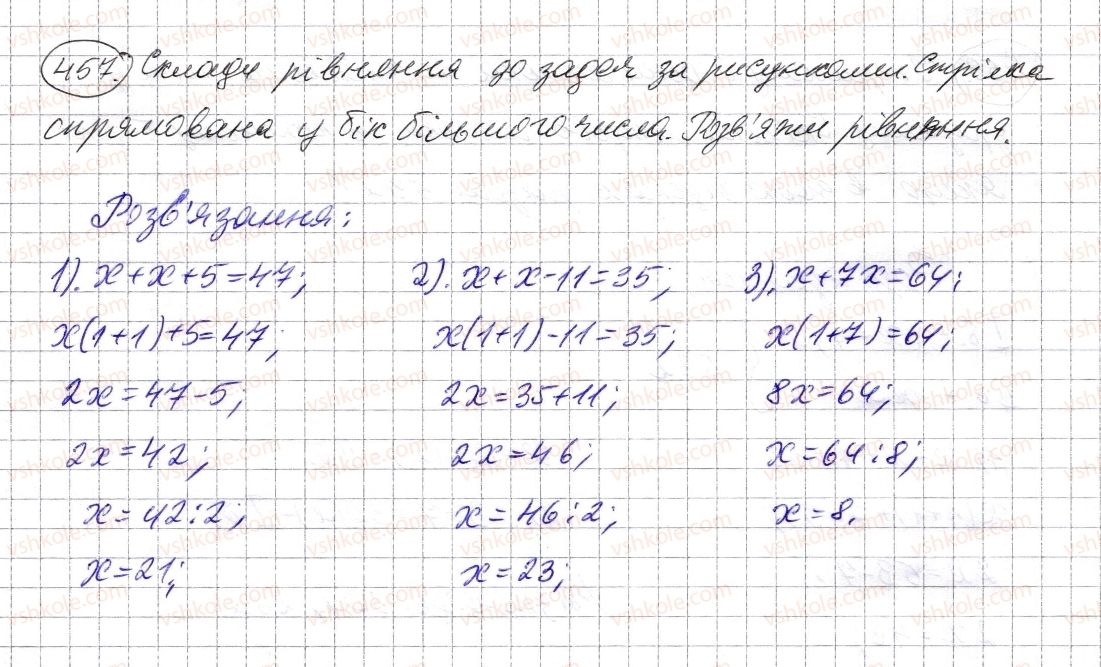 457. Склади рівняння до задач за рисунками. Стрілка
спрямована у бік більшого числа. Розв'яжи рівняння.
Розв'язання:
1). x+x+5=47; 2). x+x-11=35; 3). x+7x=64;
x(1+1)+5=47; x(1+1)-11=35; x(1+7)=64;
2x=47-5; 2x=35+11; 8x=64;
2x=42; 2x=46; x=64:8;
x=42:2; x=46:2; x=8.
x=21; x=23;